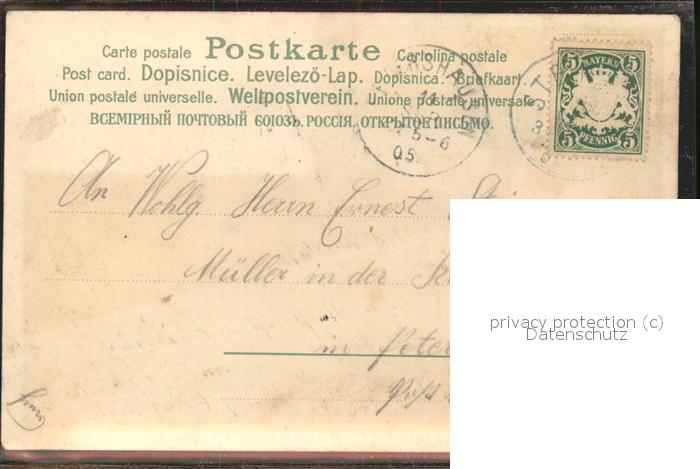 Carte postale Postkarte Cartolina postale
Post card. Dopisnice. Levelező-Lap. Dopisnica. Briefkaart.
Union postale universelle. Weltpostverein. Unione postale universale
ВСЕМІРНЫЙ ПОЧТОВЫЙ СОЮЗЪ. РОССІЯ. ОТКРЫТОЕ ПИСЬМО.
5 BAYERN 5
5 PFENNIG 5
11
5-6
05
An Wohlg. Herrn Ernest
Müller in der
in Peter
Post
privacy protection (c)
Datenschutz